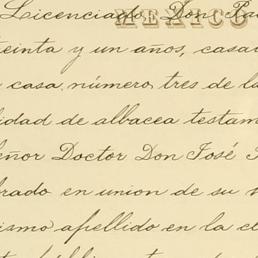 Licenciado, Don Ra
MEXICO
treinta y un años, casad
casa número tres de la
lidad de albacea testam
eñor Doctor Don José
brado en union de su
ismo apellido en la c